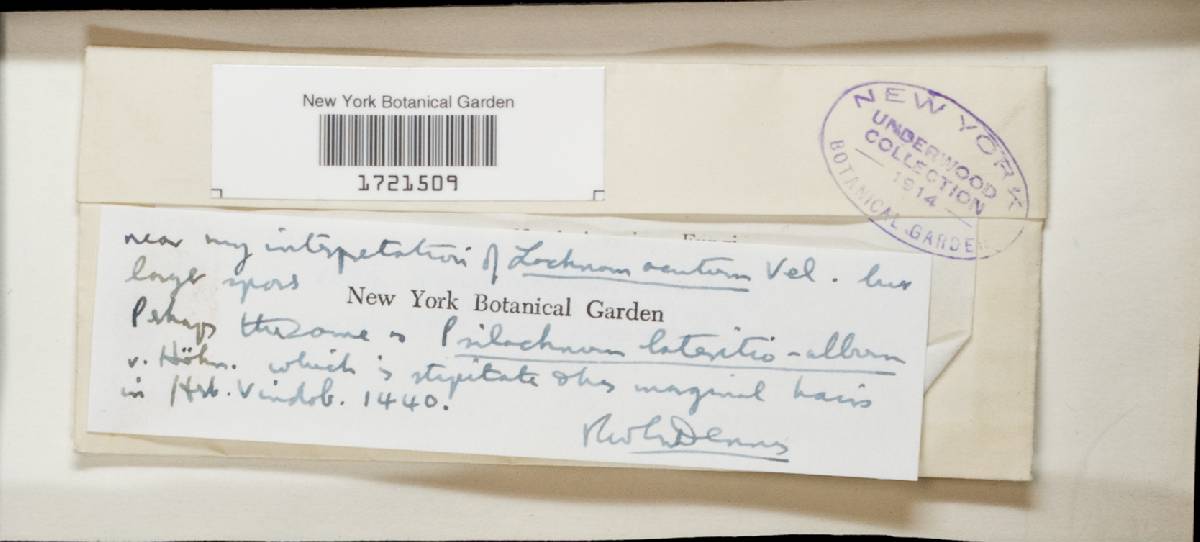 New York Botanical Garden
1721509
NEW YORK
BOTANICAL GARDEN
UNDERWOOD
COLLECTION
1914
near my interpretation of Lachnum acutum Vel. but
large spores
New York Botanical Garden
Perhaps the same as Psilachnum lateritio-album
v. Höhn. which is stipitate & has marginal hairs
in Hrb. Vindob. 1440.
RWG Dennis